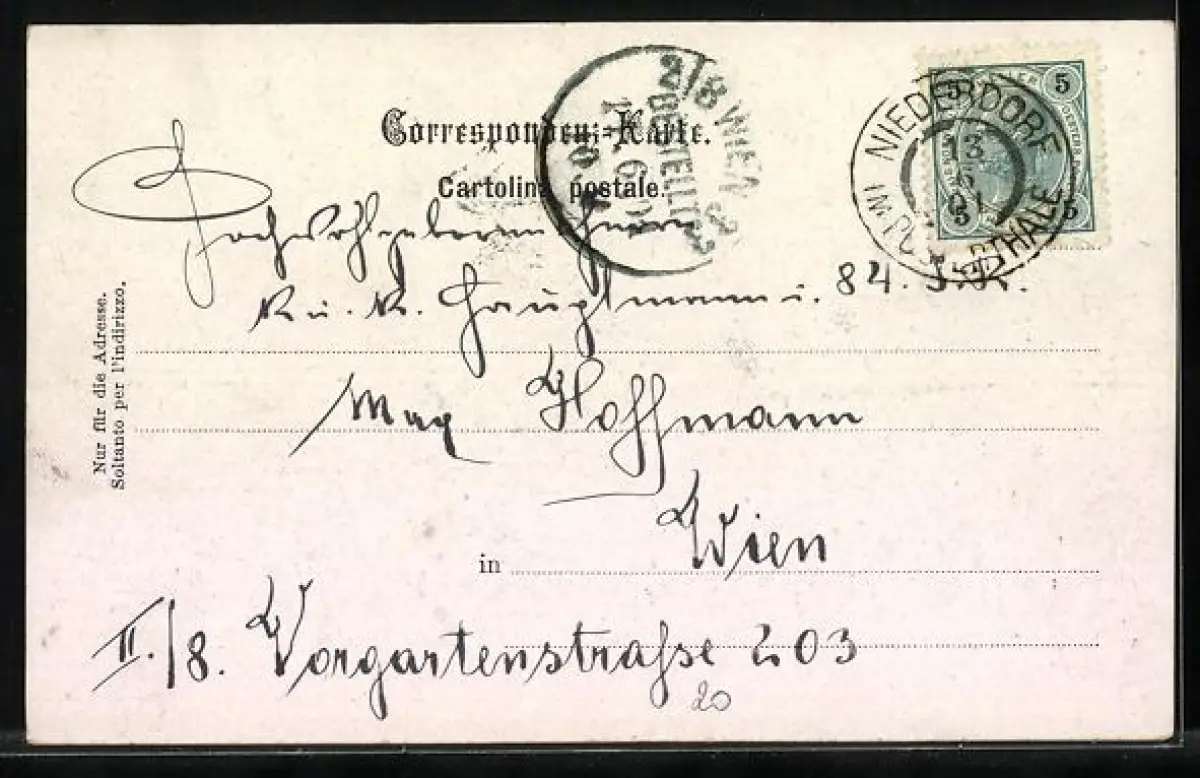 Correspondenz-Karte.
Cartolina postale.
5 5
5 5
NIEDERDORF
13 6 01
THALE
2/8 WIEN
BESTELLT
Hochwohlgeboren Herrn
K. u. K. Hauptmann i. 84. I.R.
Max Hoffmann
in Wien
II./8. Vorgartenstraße 203
20
Nur für die Adresse.
Soltanto per l'indirizzo.